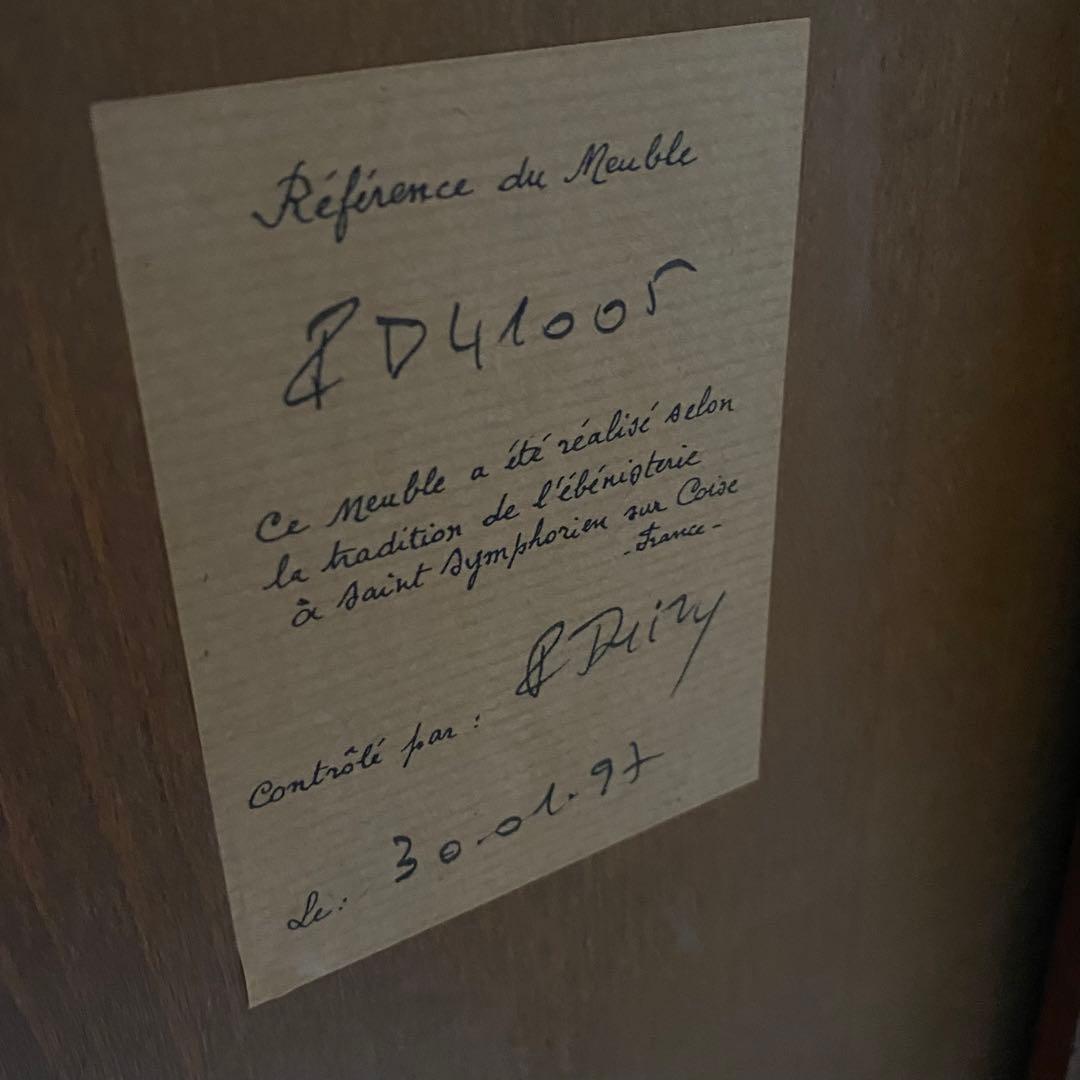 Référence du Meuble
RD41005
Ce Meuble a été réalisé selon
la tradition de l'ébénisterie
à Saint Symphorien sur Coise
- France -
Contrôlé par :
Le : 30.01.97